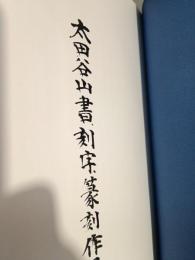 太田谷山書・刻字・篆刻作